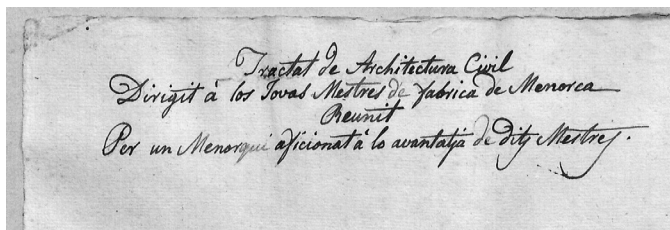 Tractat de Architectura Civil
Dirigit â los Jovas Mestres de fabrica de Menorca
Reunit
Per un Menorqui aficionat â lo avantatja de dits Mestres.